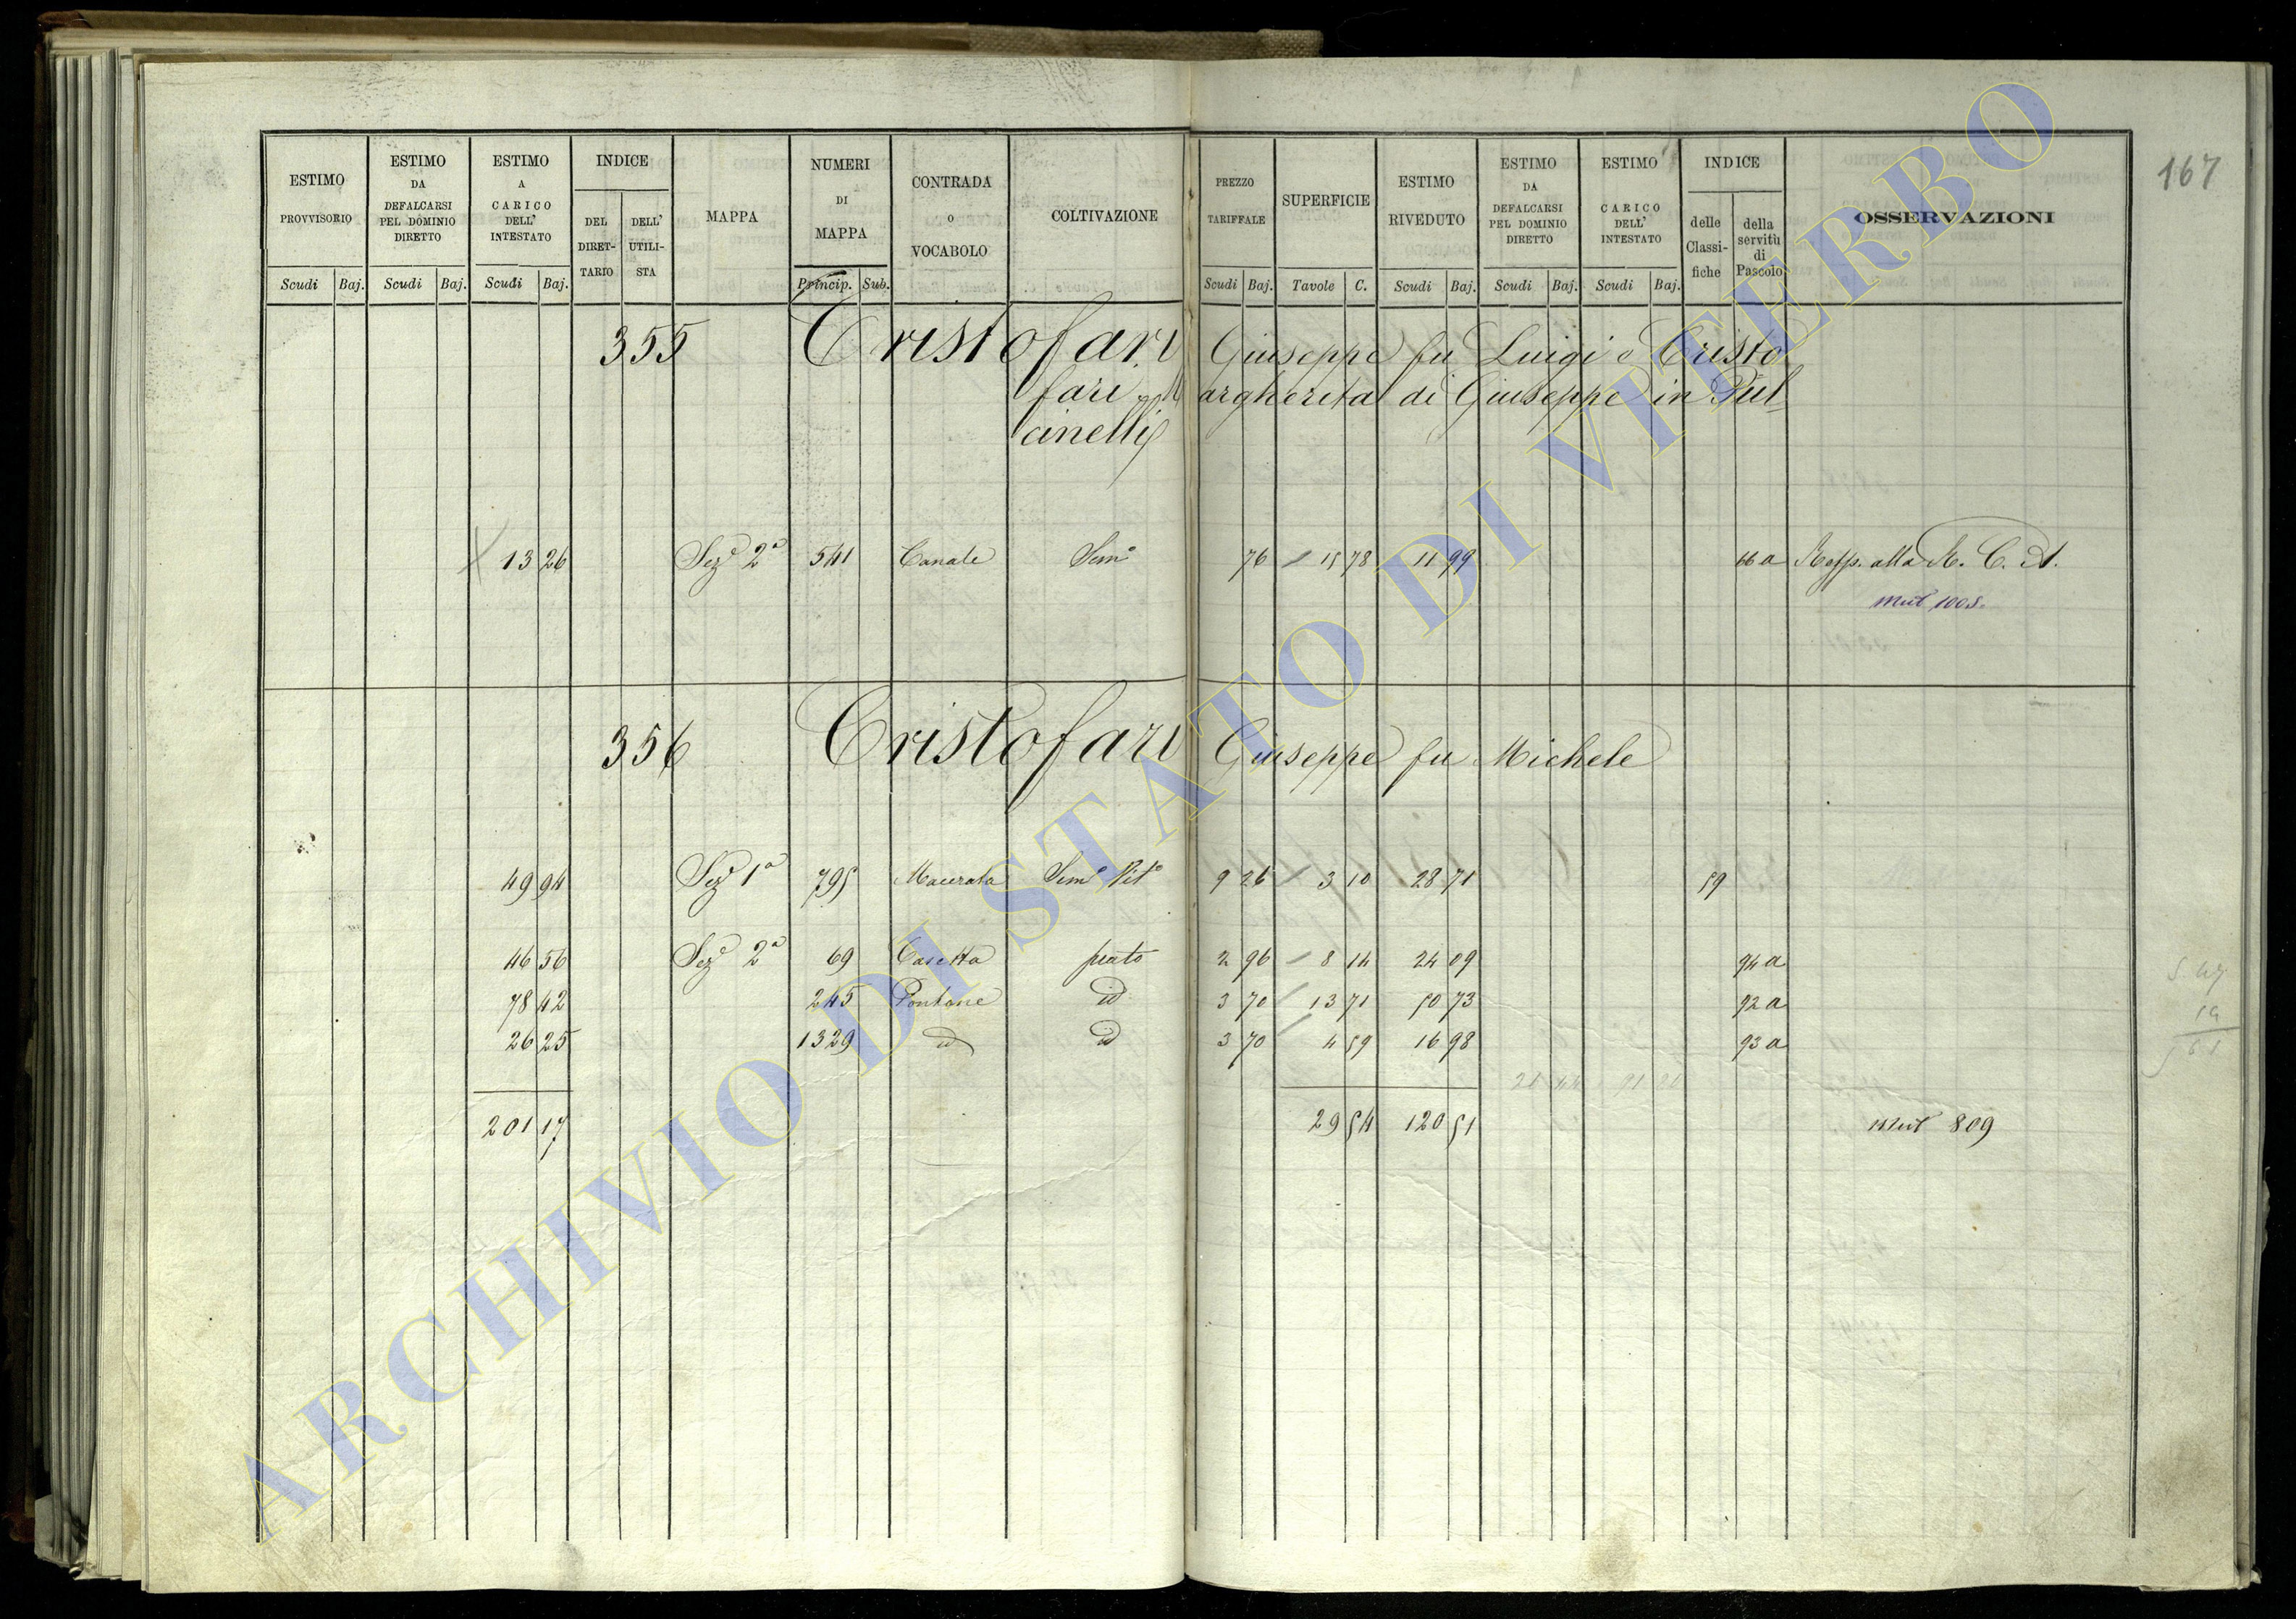 167
ESTIMO PROVVISORIO
ESTIMO DA DEFALCARSI PEL DOMINIO DIRETTO
ESTIMO A CARICO DELL' INTESTATO
INDICE
DEL DIRET-TARIO
DELL' UTILI-STA
MAPPA
NUMERI DI MAPPA
CONTRADA O VOCABOLO
COLTIVAZIONE
PREZZO TARIFFALE
SUPERFICIE
ESTIMO RIVEDUTO
ESTIMO DA DEFALCARSI PEL DOMINIO DIRETTO
ESTIMO A CARICO DELL' INTESTATO
INDICE
delle Classi-fiche
della servitù di Pascolo
OSSERVAZIONI
Scudi Baj. Scudi Baj. Scudi Baj. Princip. Sub. Scudi Baj. Tavole C. Scudi Baj. Scudi Baj. Scudi Baj.
355 Cristofari Giuseppe fu Luigi e Cristo
fari Margherita di Giuseppe in Pul-
cinelli
13 26 Sez.e 2a 541 Canale Sem.o 76 15 78 11 99 66 a Resp. alla R. C. A.
Mut 1005.
356 Cristofari Giuseppe fu Michele
49 94 Sez.e 1a 795 Macerata Sem.o Vit.o 9 26 3 10 28 71 59
46 56 Sez.e 2a 69 Casetta prato 2 96 8 14 24 09 94 a
78 42 245 Pontone id 3 70 13 71 50 73 92 a
26 25 1329 id id 3 70 4 59 16 98 93 a
201 17 29 54 120 51 Mut 809
ARCHIVIO DI STATO DI VITERBO